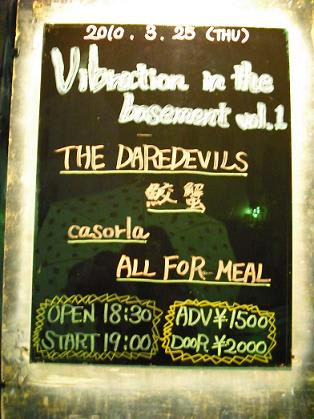 2010. 3. 25 (THU)
Vibration in the
basement vol.1
THE DAREDEVILS
鮫蟹
casorla
ALL FOR MEAL
OPEN 18:30
START 19:00
ADV ¥1500
DOOR ¥2000